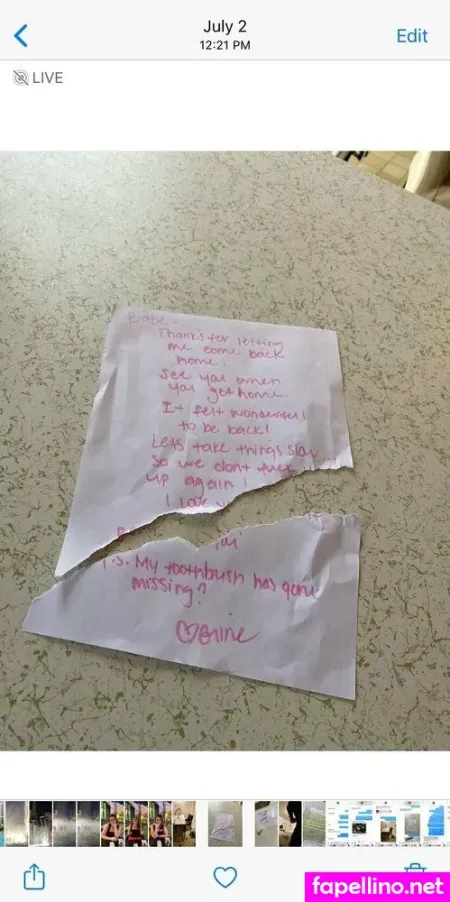 July 2
12:21 PM
Edit
LIVE
Babe -
Thanks for letting
me come back
home.
See you when
you get home.
It felt wonderful!
to be back!
Lets take things slow...
so we dont fuck
up again!
I Love
P.S. My toothbrush has gone
missing?
fapellino.net